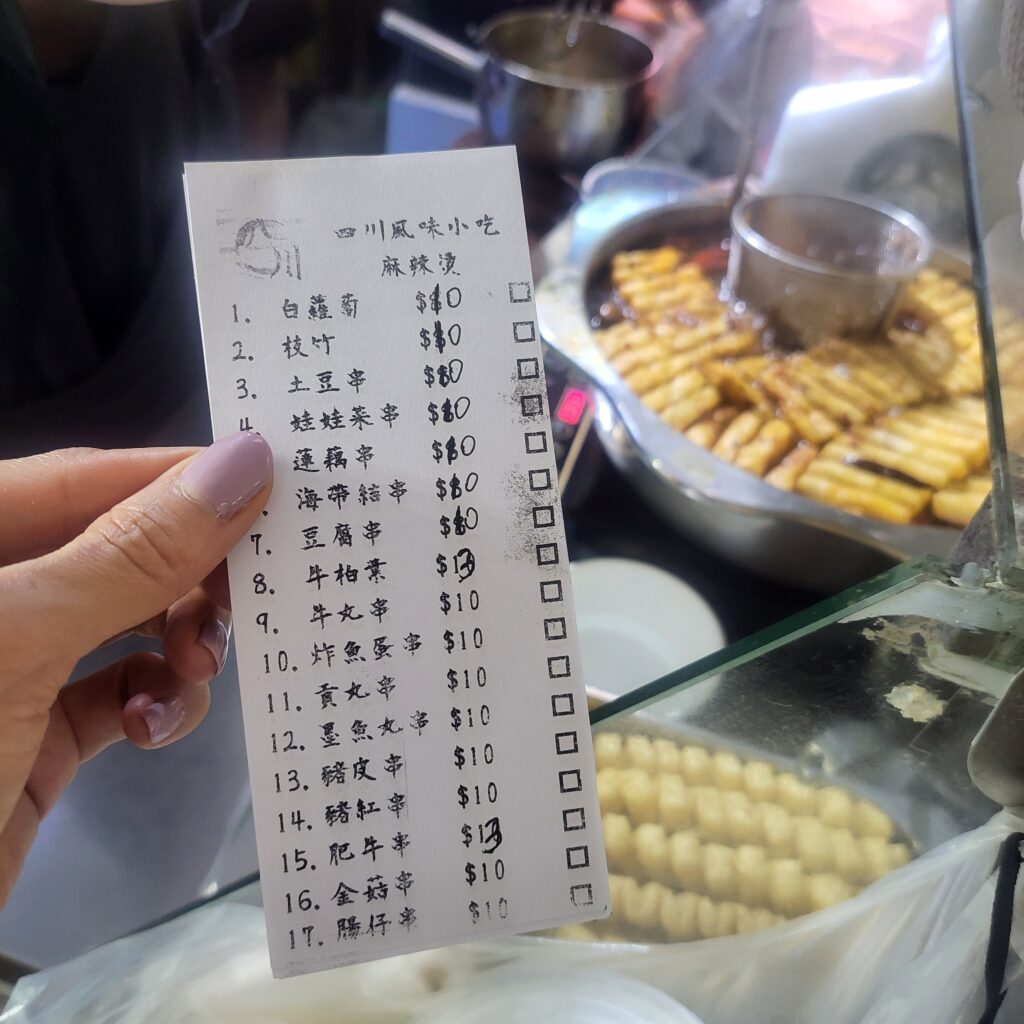 四川風味小吃
麻辣燙
1. 白蘿蔔 $10
2. 枝竹 $10
3. 土豆串 $10
4. 娃娃菜串 $10
蓮藕串 $10
海帶結串 $10
7. 豆腐串 $10
8. 牛柏葉 $13
9. 牛丸串 $10
10. 炸魚蛋串 $10
11. 貢丸串 $10
12. 墨魚丸串 $10
13. 豬皮串 $10
14. 豬紅串 $10
15. 肥牛串 $13
16. 金菇串 $10
17. 腸仔串 $10